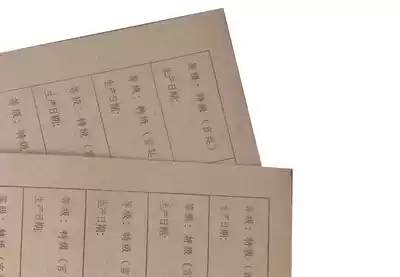 等级：特级（宫廷）
生产日期:
等级：特级（宫廷
生产日期:
等级：特级（宫
生产日期:
等级：特
等级：特级（宫
生产日期:
等级：特级（宫
生产日期:
等级：特级（宫
生产日期:
等级：特级（宫
生产日期:
等级：特级（宫